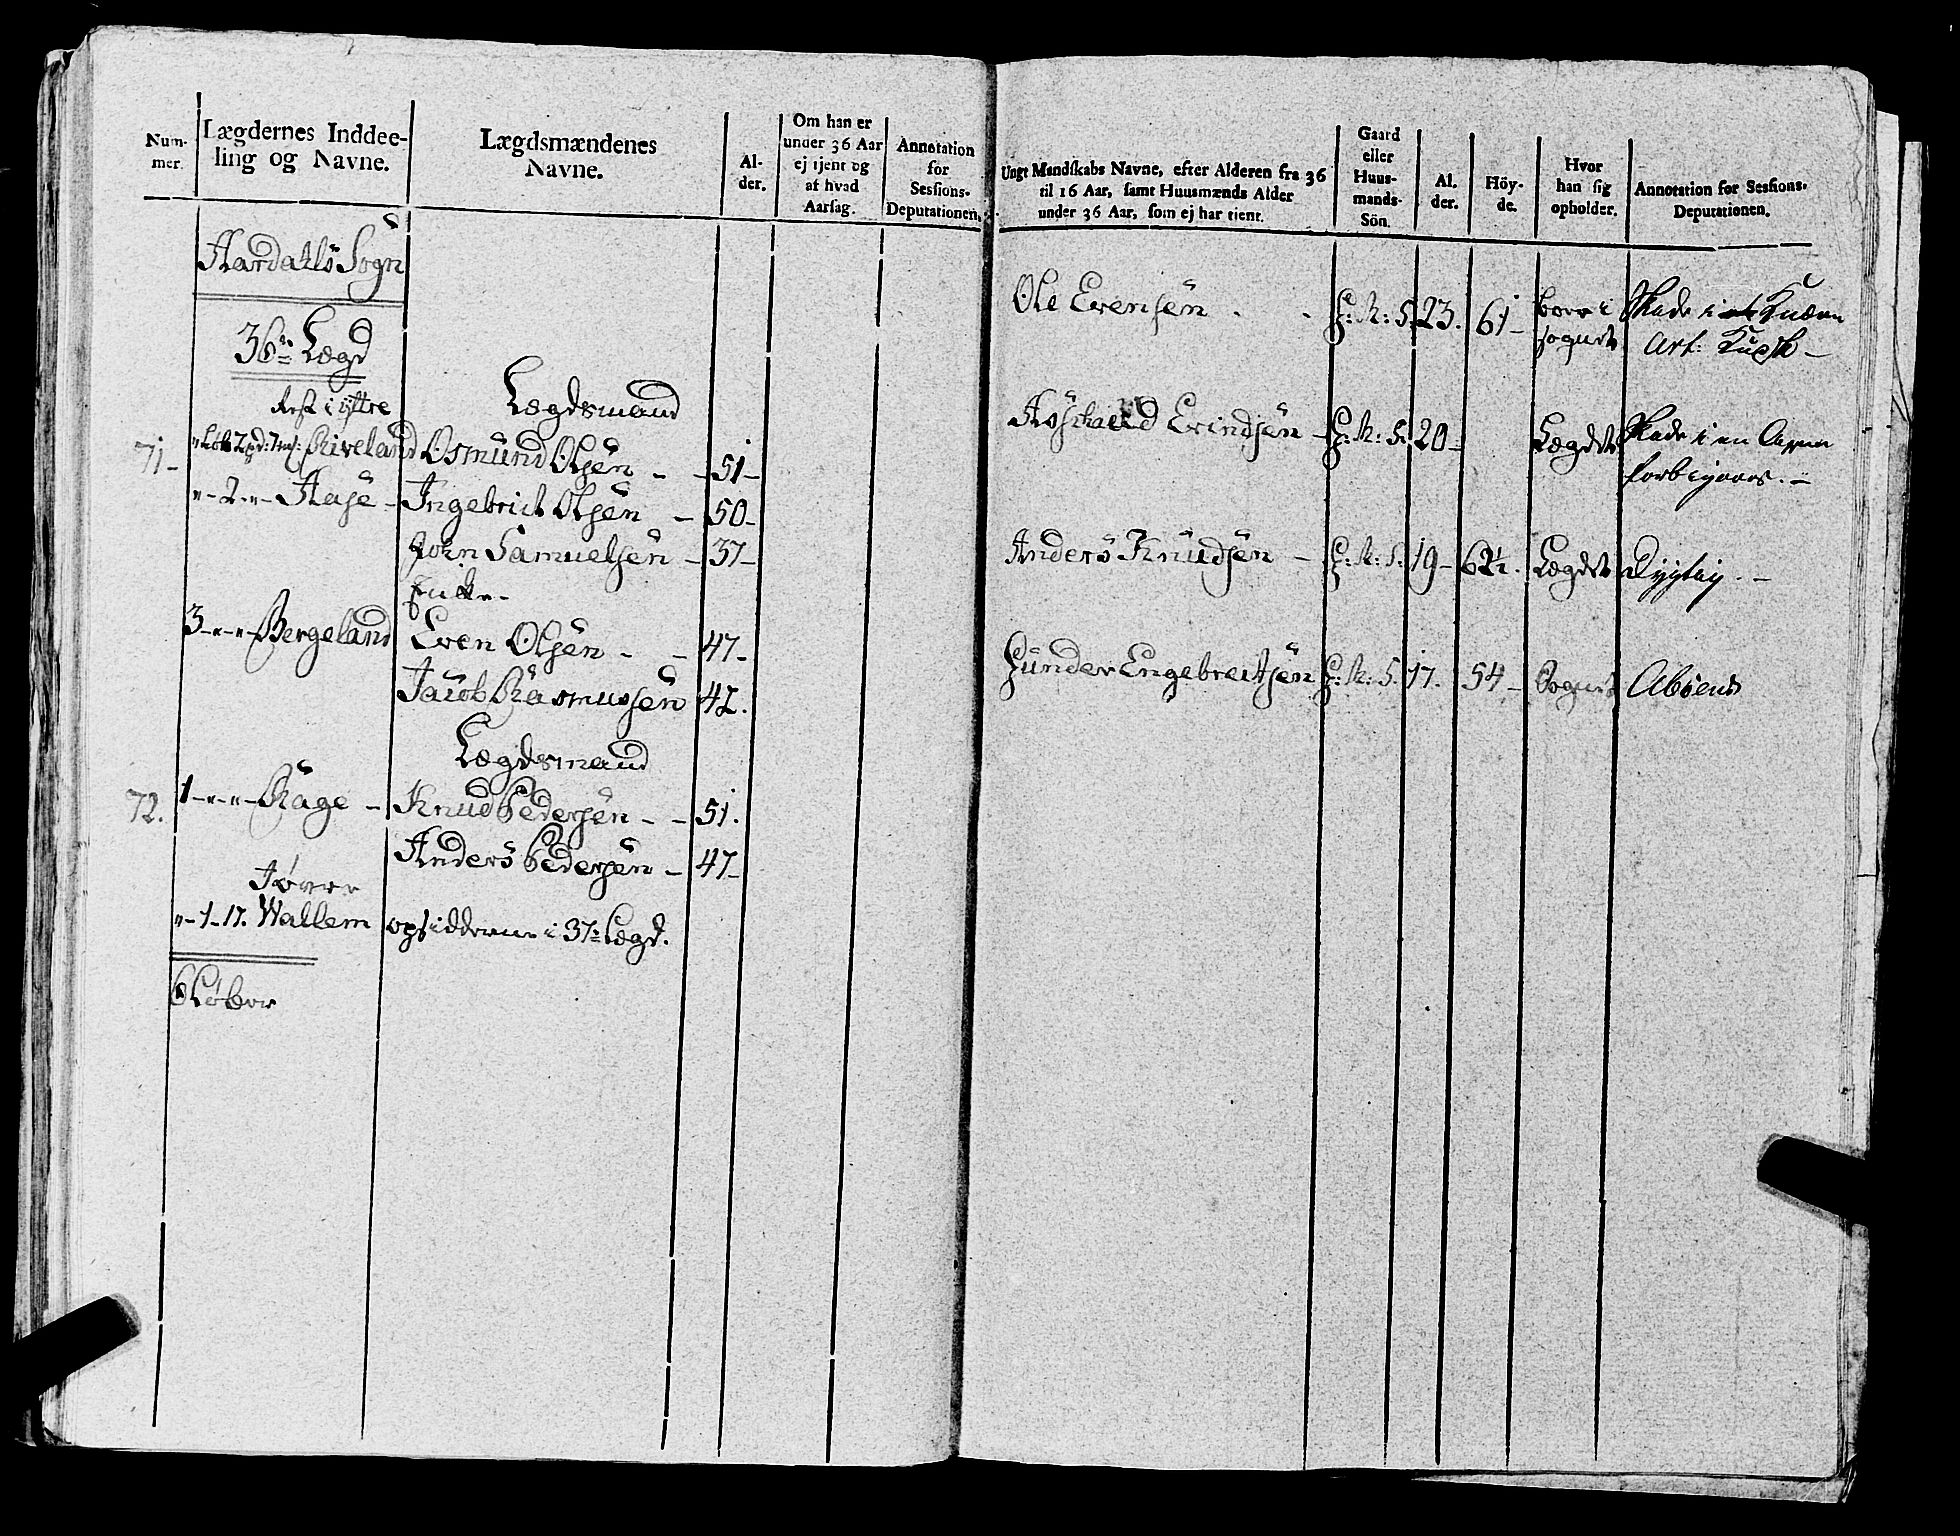 Num-
mer.
Lægdernes Inddee-
ling og Navne.
Lægdsmændenes
Navne.
Al-
der.
Om han er
under 36 Aar
ej tjent og
af hvad
Aarsag.
Annotation
for
Sessions-
Deputationen.
Aardahls Sogn
36te Lægd
Rest i ÿttre
Lægdsmand
71- Løb 2 pd: 7 ml: Riveland Osmund Olsen - - 51-
"-2-"- Aase - Ingebrict Olsen - 50-
John Samuelsen - 37-
Enke-
3-"-"- Bergeland Even Olsen - - 47-
Jacob Rasmussen 42.
Lægdsmand
72. 1-"-"- Rage - Knud Pedersen - - 51.
Anders Pedersen - 47-
"-1-17. Wallem opsidderne i 37te Lægd.
6 Løber
Ungt Mandskabs Navne, efter Alderen fra 36
til 16 Aar, samt Huusmænds Alder
under 36 Aar, som ej har tient.
Gaard
eller
Huus-
mands-
Sön.
Al.
der.
Höy-
de.
Hvor
han sig
opholder.
Annotation for Sessions-
Deputationen.
Ole Evensen . . G: M: S. 23. 61- boer i Skade i et Knæe
Sognet
Aschald Evindsen - G: M: S. 20- Lægdet Skade i en Arm
forbigaaes. -
Anders Knudsen - G: M: S. 19- 62½. Lægdet Dygtig. -
Gunder Engebrectsen G: M: S. 17. 54- Sognet Absent